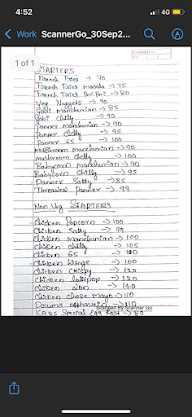 4:51
4G
Work ScannerGo_30Sep2...
1 of 1
STARTERS
French Fries → 70
French Fries masala → 75
French Fries Peri Peri → 80
Veg Nuggets → 90
Gobi manchurian → 85
Gobi chilly → 90
Panner manchurian → 90
Panner chilly → 95
Panner 65 → 100
Mushroom manchurian → 90
mushroom chilly → 100
Babycorn manchurian → 90
Babycorn chilly → 95
Panner → 85
Non Veg STARTERS
Chicken Popcorn → 100
Chicken → 90
Chicken manchurian → 100
Chicken chilly → 105
Chicken 65 → 100
Chicken Wings → 100
Chicken crispy → 120
Chicken lollipop → 120
Chicken → 140
Chicken → 110
→ 110
Special Egg → 80